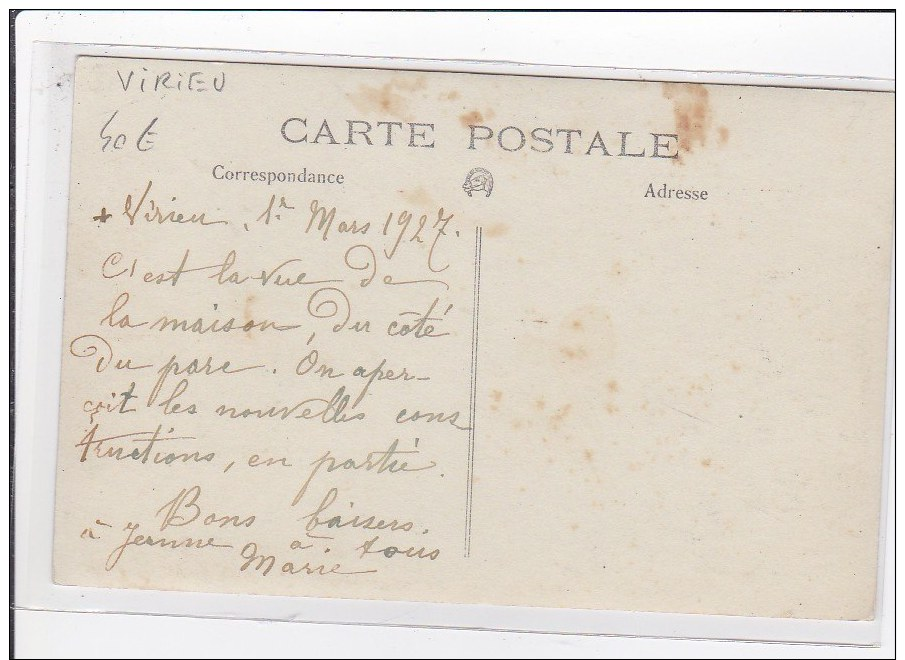 VIRIEU
40 €
CARTE POSTALE
Correspondance
Adresse
+ Virieu, 1r Mars 1927.
C'est la vue de
la maison, du côté
du parc. On aper-
çoit les nouvelles cons
tructions, en partie.
Bons baisers.
à Jeanne à tous
Marie